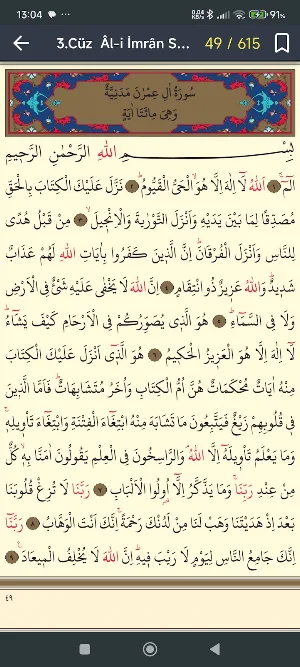 13:04
0,04 KB/s
91%
3.Cüz Âl-i İmrân S... 49 / 615
سُورَةُ اٰلِ عِمْرٰنَ مَدَنِيَّةٌ
وَهِيَ مِائَتَا اٰيَةٍ
بِسْمِ اللّٰهِ الرَّحْمٰنِ الرَّحِيمِ
الٓمٓ ١ اَللّٰهُ لَٓا اِلٰهَ اِلَّا هُوَۙ الْحَيُّ الْقَيُّومُۜ ٢ نَزَّلَ عَلَيْكَ الْكِتَابَ بِالْحَقِّ
مُصَدِّقًا لِمَا بَيْنَ يَدَيْهِ وَاَنْزَلَ التَّوْرٰيةَ وَالْاِنْجٖيلَۙ ٣ مِنْ قَبْلُ هُدًى
لِلنَّاسِ وَاَنْزَلَ الْفُرْقَانَۜ اِنَّ الَّذٖينَ كَفَرُوا بِاٰيَاتِ اللّٰهِ لَهُمْ عَذَابٌ
شَدٖيدٌۜ وَاللّٰهُ عَزٖيزٌ ذُو انْتِقَامٍ ٤ اِنَّ اللّٰهَ لَا يَخْفٰى عَلَيْهِ شَيْءٌ فِي الْاَرْضِ
وَلَا فِي السَّمَٓاءِۜ ٥ هُوَ الَّذٖي يُصَوِّرُكُمْ فِي الْاَرْحَامِ كَيْفَ يَشَٓاءُۜ
لَٓا اِلٰهَ اِلَّا هُوَ الْعَزٖيزُ الْحَكٖيمُ ٦ هُوَ الَّذٖٓي اَنْزَلَ عَلَيْكَ الْكِتَابَ
مِنْهُ اٰيَاتٌ مُحْكَمَاتٌ هُنَّ اُمُّ الْكِتَابِ وَاُخَرُ مُتَشَابِهَاتٌۜ فَاَمَّا الَّذٖينَ
فٖي قُلُوبِهِمْ زَيْغٌ فَيَتَّبِعُونَ مَا تَشَابَهَ مِنْهُ ابْتِغَٓاءَ الْفِتْنَةِ وَابْتِغَٓاءَ تَأْوٖيلِهٖۚ
وَمَا يَعْلَمُ تَأْوٖيلَهُٓ اِلَّا اللّٰهُۢ وَالرَّاسِخُونَ فِي الْعِلْمِ يَقُولُونَ اٰمَنَّا بِهٖۙ كُلٌّ
مِنْ عِنْدِ رَبِّنَاۚ وَمَا يَذَّكَّرُ اِلَّٓا اُو۬لُوا الْاَلْبَابِ ٧ رَبَّنَا لَا تُزِغْ قُلُوبَنَا
بَعْدَ اِذْ هَدَيْتَنَا وَهَبْ لَنَا مِنْ لَدُنْكَ رَحْمَةًۚ اِنَّكَ اَنْتَ الْوَهَّابُ ٨ رَبَّنَٓا
اِنَّكَ جَامِعُ النَّاسِ لِيَوْمٍ لَا رَيْبَ فٖيهِۜ اِنَّ اللّٰهَ لَا يُخْلِفُ الْمٖيعَادَ۟ ٩
٤٩